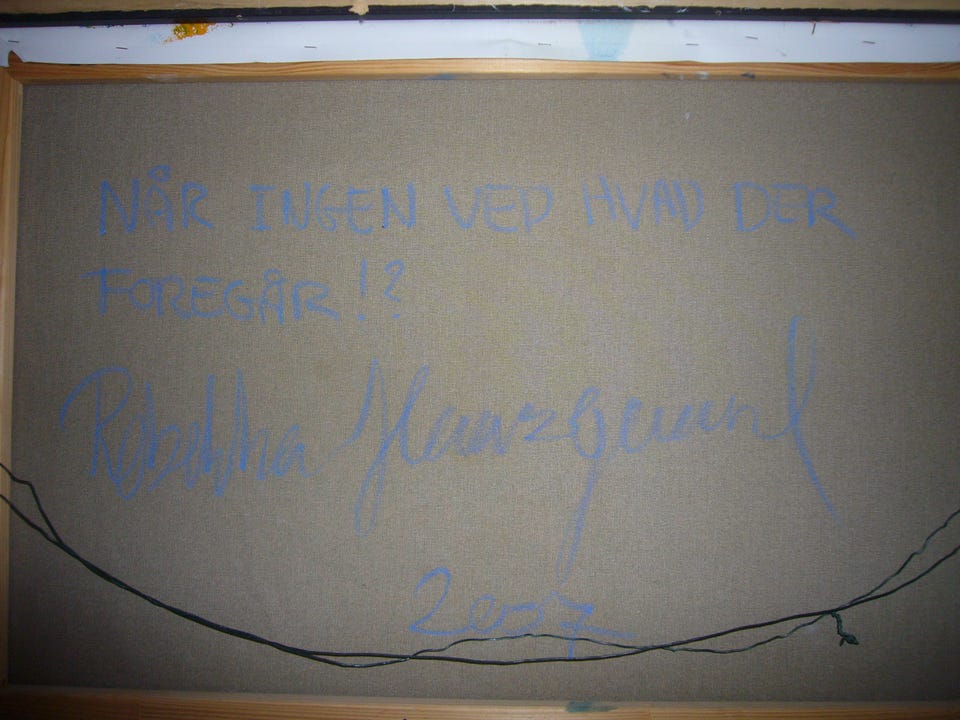 NÅR INGEN VED HVAD DER
FOREGÅR!?
Rebekka
2007